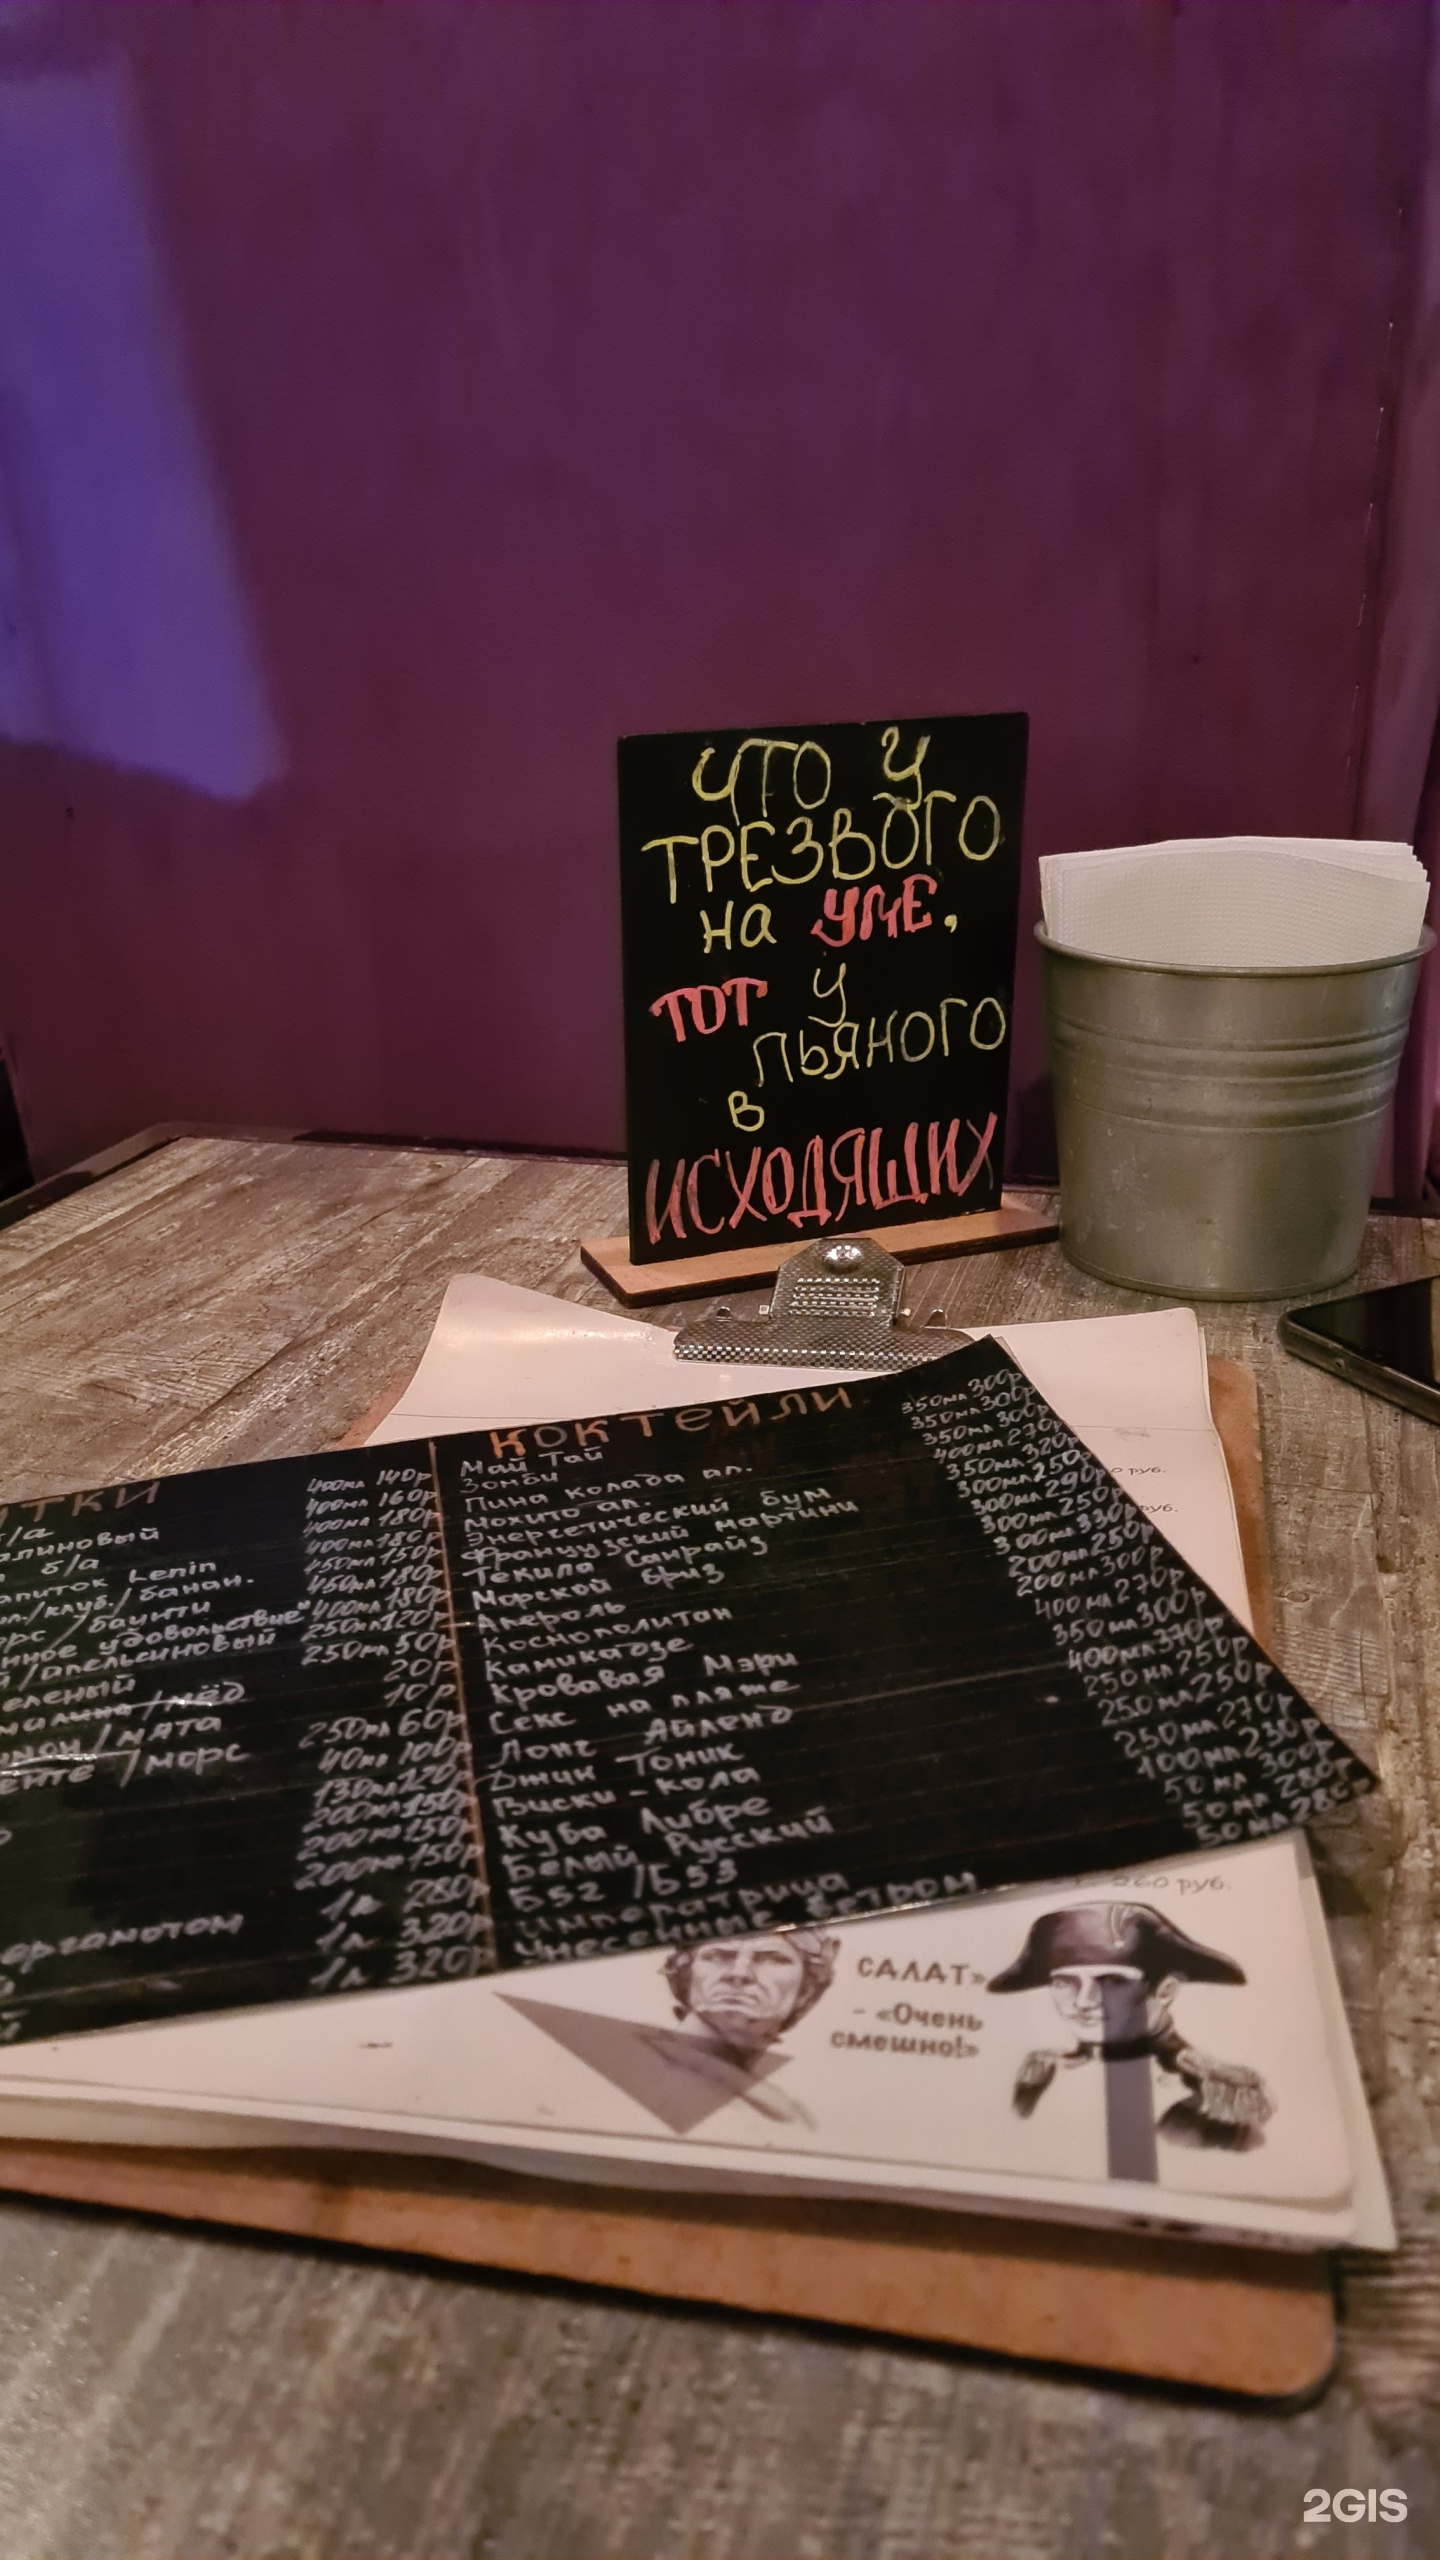 ЧТО У
ТРЕЗВОГО
на УМЕ,
ТОТ У
ПЬЯНОГО
В
ИСХОДЯЩИХ
КОКТЕЙЛИ
Май Тай
Зомби
Пина колада ал.
Мохито ал.
Энергетический бум
Французский мартини
Текила Санрайз
Морской бриз
Апероль
Космополитан
Камикадзе
Кровавая Мэри
Секс на пляже
Лонг Айленд
Джин Тоник
Виски-кола
Куба Либре
Белый Русский
Б52 /Б53
Императрица
Унесенные ветром
350мл 300р
350мл 300р
350мл 300р
400мл 270р
350мл 320р
300мл 250р
300мл 290р
300мл 250р
300мл 330р
200мл 250р
200мл 300р
400мл 270р
350мл 300р
400мл 370р
250мл 250р
250мл 250р
250мл 270р
100мл 230р
50мл 300р
50мл 280р
50мл 280р
ИТКИ
б/а
алиновый
б/а
апиток Lenin
/клуб./банан.
/баунти
нное удовольствие"
й/апельсиновый
еленый
малина/лёд
имон/мята
енте /морс
ергамотом
400мл 140р
400мл 160р
400мл 180р
400мл 180р
450мл 150р
450мл 180р
400мл 180р
250мл 120р
250мл 50р
20р
10р
250мл 60р
40мл 100р
130мл 120р
200мл 150р
200мл 150р
200мл 150р
1л 280р
1л 320р
1л 320р
руб.
руб.
260 руб.
САЛАТ»
- «Очень
смешно!»
2GIS